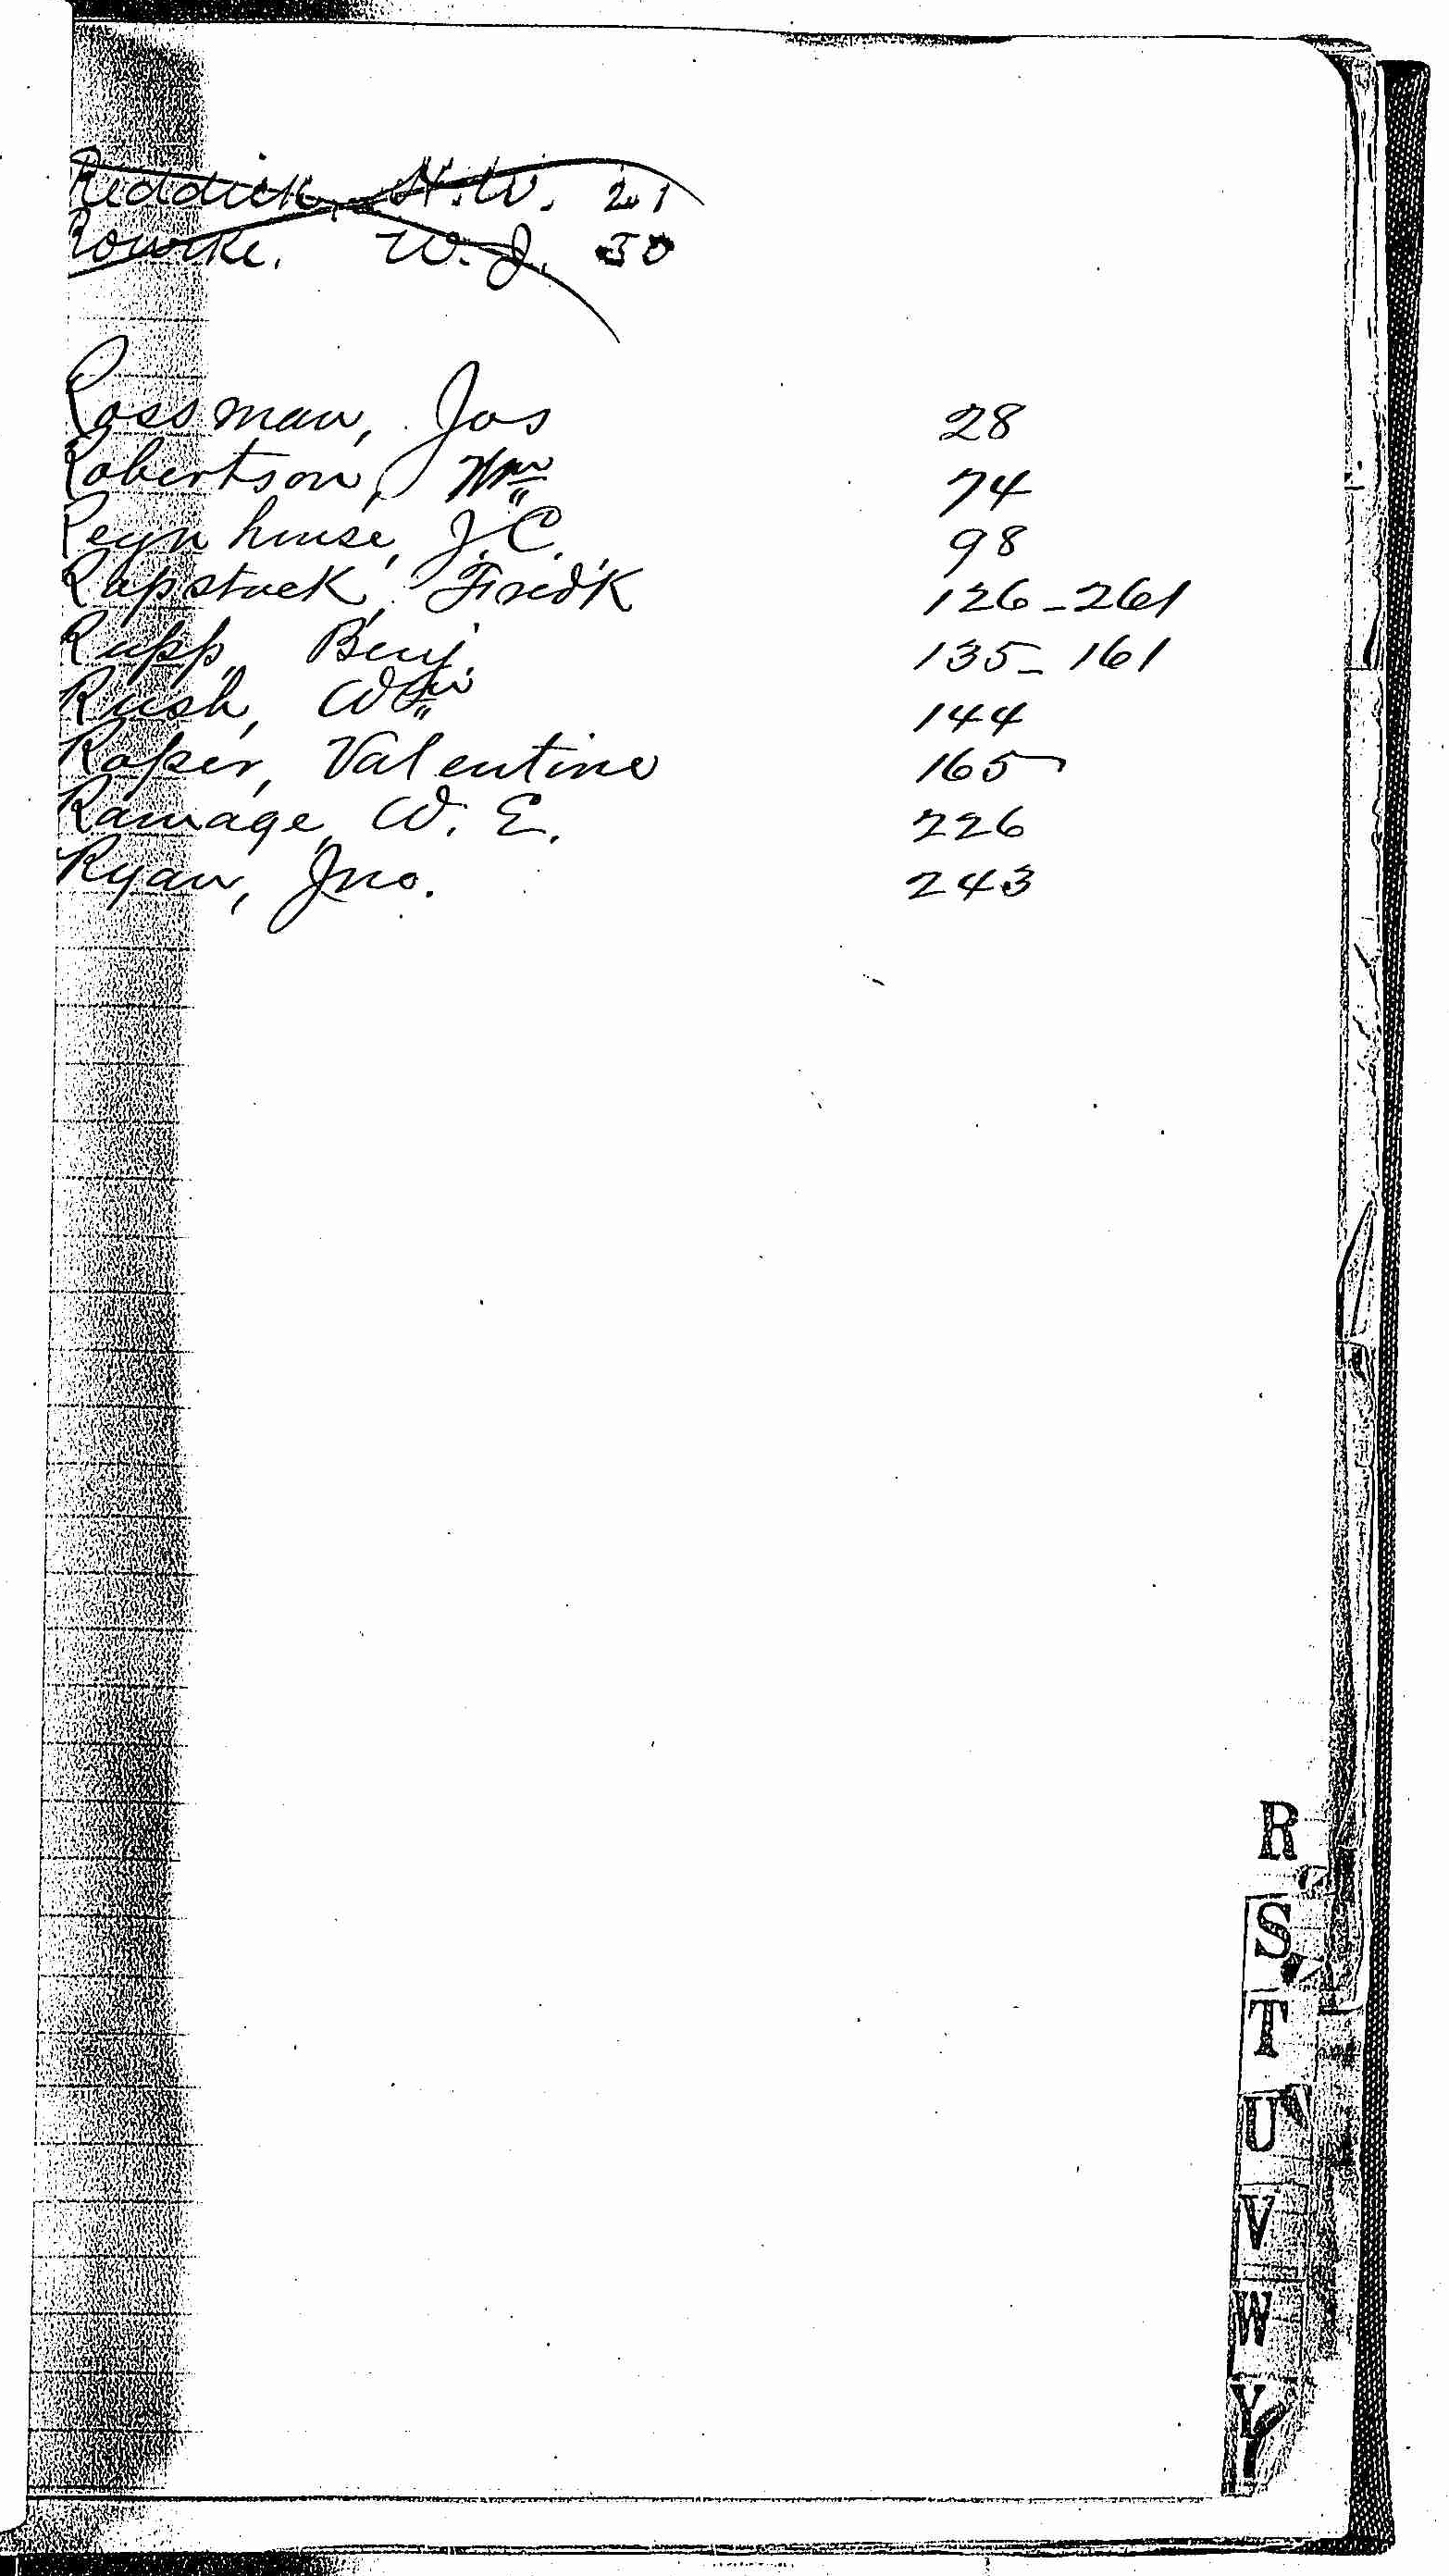 Reddick, H.W. 21
Rourke. W.J. 50
Rossman, Jos 28
Robertson, Wm 74
Reynhouse, J.C. 98
Rapstock, Fredk 126-261
Rupp, Benj. 135-161
Rush, Wm 144
Roper, Valentine 165
Ramage, W. E. 226
Ryan, Jno. 243
R
S
T
U
V
W
Y